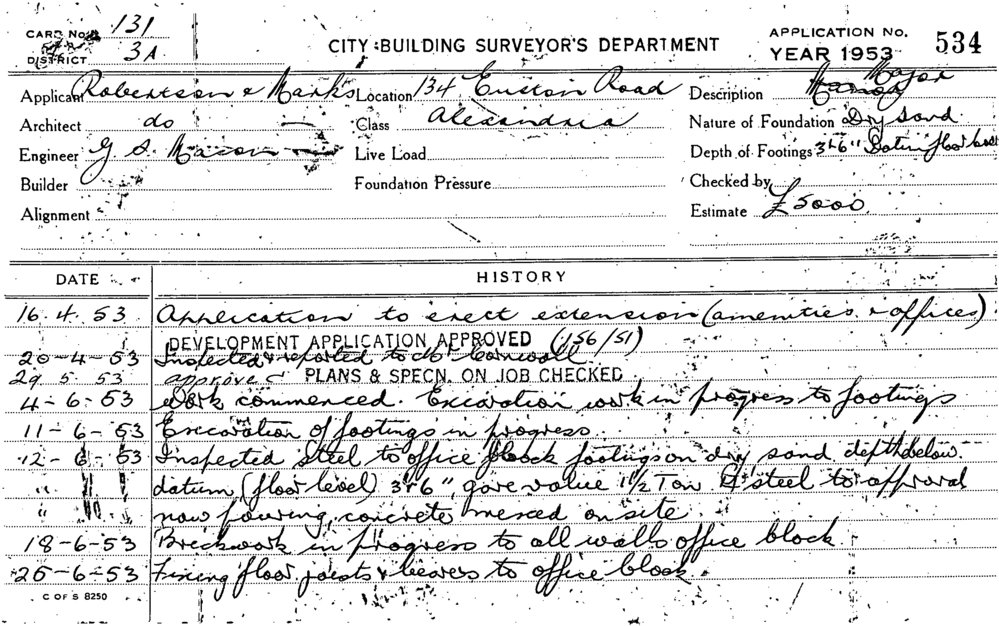 CARD No. 131
DISTRICT 3A
CITY BUILDING SURVEYOR'S DEPARTMENT
APPLICATION No. 534
YEAR 1953
Applicant Robertson & Marks Location 134 Euston Road Description Major
Architect do Class Alexandria Nature of Foundation Dry sand
Engineer G. S. Mason Live Load Depth of Footings 3'6" Datum floor level
Builder Foundation Pressure Checked by
Alignment Estimate £5000
DATE HISTORY
16.4.53 Application to erect extension (amenities & offices).
DEVELOPMENT APPLICATION APPROVED (156/51)
20-4-53 Inspected & reported to Cornwall
29.5.53 approved PLANS & SPECN. ON JOB CHECKED
4-6-53 Work commenced. Excavation work in progress to footings
11-6-53 Excavation of footings in progress
12-6-53 Inspected Steel to office block footings on dry sand depth below
" datum (floor level) 3'6", gave value 1 1/2 Ton steel to approval
" now pouring, concrete mixed on site.
18-6-53 Brickwork in progress to all walls office block
25-6-53 Fixing floor joists & bearers to office block.
C OF S 8250